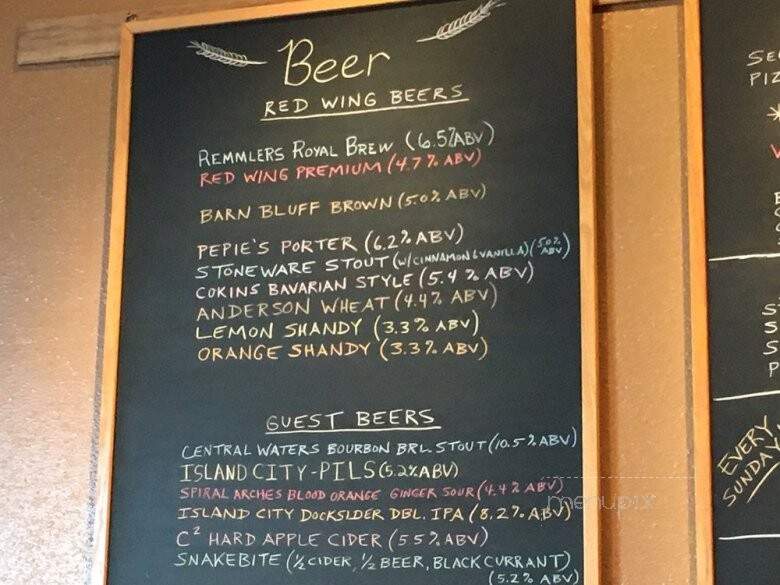 Beer
RED WING BEERS
REMMLERS ROYAL BREW (6.5% ABV)
RED WING PREMIUM (4.7% ABV)
BARN BLUFF BROWN (5.0% ABV)
PEPIE'S PORTER (6.2% ABV)
STONEWARE STOUT (W/CINNAMON & VANILLA) (5.0% ABV)
COKINS BAVARIAN STYLE (5.4% ABV)
ANDERSON WHEAT (4.4% ABV)
LEMON SHANDY (3.3% ABV)
ORANGE SHANDY (3.3% ABV)
GUEST BEERS
CENTRAL WATERS BOURBON BRL. STOUT (10.5% ABV)
ISLAND CITY-PILS (5.2% ABV)
SPIRAL ARCHES BLOOD ORANGE GINGER SOUR (4.4% ABV)
ISLAND CITY DOCKSLDER DBL. IPA (8.2% ABV)
menupix
C² HARD APPLE CIDER (5.5% ABV)
SNAKEBITE (½ CIDER, ½ BEER, BLACK CURRANT)
(5.2% ABV)
EVERY
SUNDAY